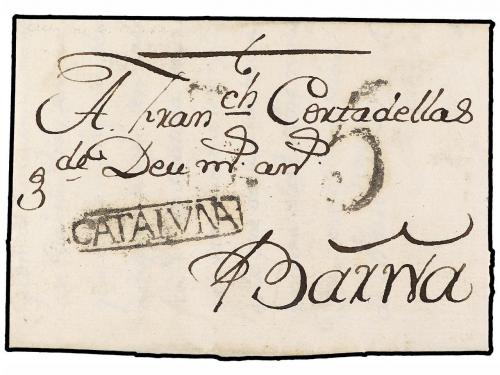 A Franch Cortadellas
gde Deu ms. ans.
5
CATALUÑA
Barna